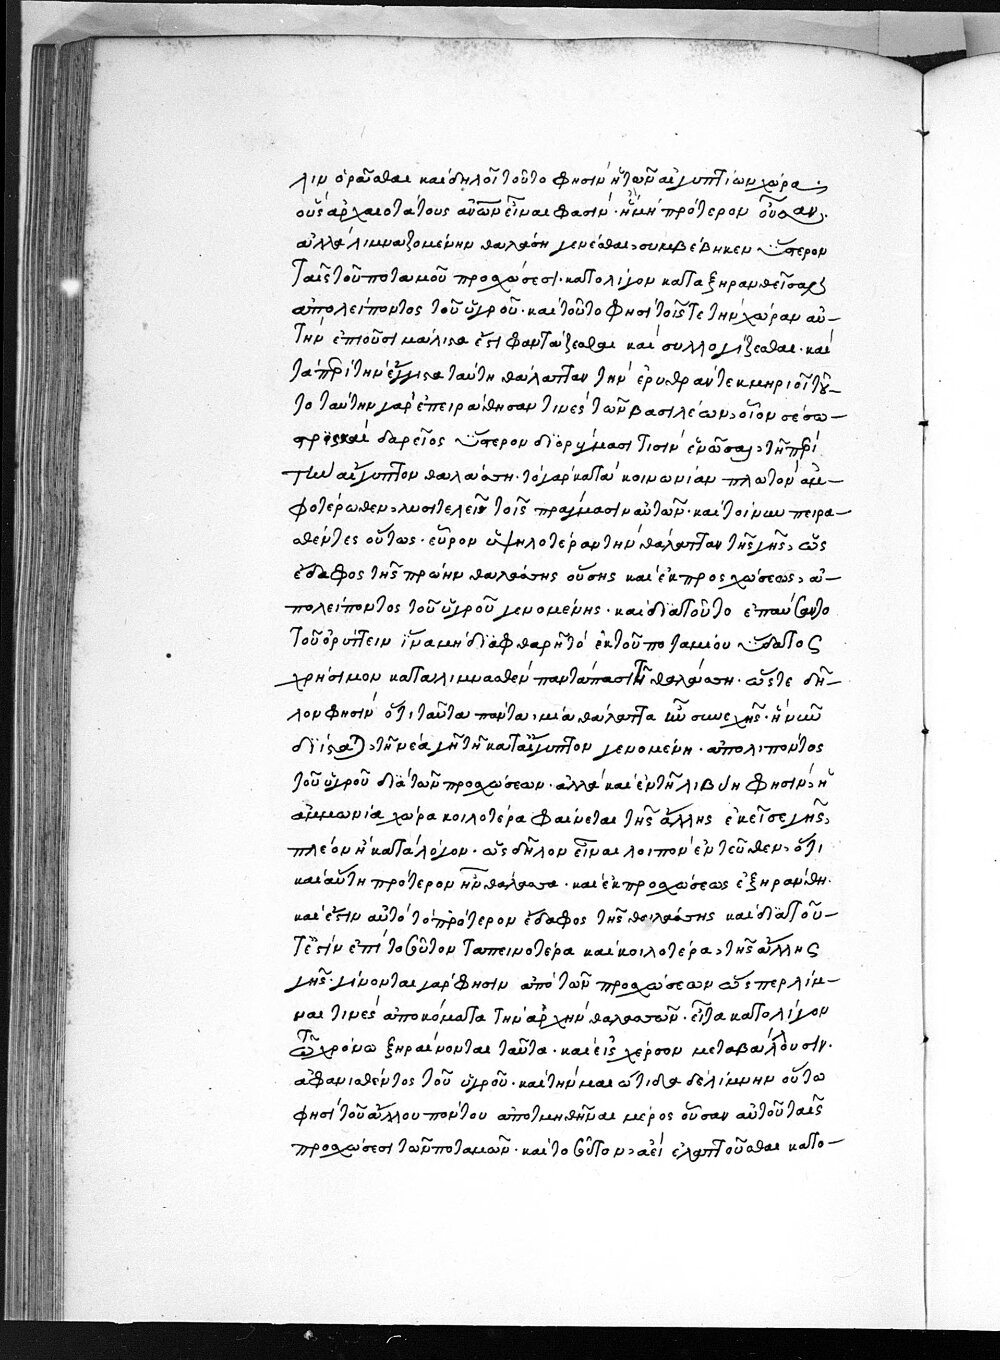 λιν ὁρᾶσθαι καὶ δηλοῖ τοῦτο φησὶν ἡ τῶν αἰγυπτίων χώρα,
οὓς ἀρχαιοτάτους ἀνῶν εἶναι φασὶν· ἣ μὴ πρότερον οὖσαν,
ἀλλὰ λιμναζομένην θαλάσση γενέσθαι, συμβέβηκεν ὕστερον
ταῖς τοῦ ποταμοῦ προσχώσεσι· κατολίγον καταξηρανθεῖσαν
ἀπολείποντος τοῦ ὑγροῦ· καὶ τοῦτο φησὶ τοῖς τε τὴν χώραν αὐ-
τὴν ἐπιοῦσι μάλιστα ἔστι φαντάζεσθαι καὶ συλλογίζεσθαι· καὶ
τὰ πρὶ τὴν ἔγγιστα ταύτη θάλατταν τὴν ἐρυθρὰν τεκμηριοῖ τοῦ-
το ταύτην γὰρ ἐπειράθησαν τινὲς τῶν βασιλέων, οἷον σέσω-
στρις καὶ δαρεῖος ὕστερον διορύγμασι τισὶν ἑνῶσαι, τῆ πρὶ
τὴν αἴγυπτον θαλάσση· τὸ γὰρ κατὰ κοινωνίαν πλωτὸν ἀμ-
φοτέρωθεν, λυσιτελεῖν τοῖς πράγμασιν αὐτῶν· καὶ τοίνυν πειρα-
θέντες οὕτως· εὗρον ὑψηλοτέραν τὴν θάλατταν τῆς γῆς, ὡς
ἔδαφος τῆς πρώην θαλάσσης οὔσης καὶ ἐκ προσχώσεως, ἀ-
πολείποντος τοῦ ὑγροῦ γενομένης· καὶ διὰ τοῦτο ἐπαύσαντο
τοῦ ὀρύττειν ἵνα μὴ διαφθαρῆ τὸ ἐκ τοῦ ποταμίου ὕδατος
χρήσιμον καταλιμνασθὲν παντάπασι τῆ θαλάσση· ὥστε δῆ-
λον φησὶν ὅτι ταῦτα πάντα, μία θάλαττα ἦν συνεχής· ἣ νῦν
διίσταται, τῆ νέα γῆ τῆ κατ αἴγυπτον γενομένη· ἀπολιπόντος
τοῦ ὑγροῦ διὰ τῶν προσχώσεων· ἀλλὰ καὶ ἐν τῆ λιβύη φησὶν, ἡ
ἀμμωνία χώρα κοιλοτέρα φαίνεται τῆς ἄλλης ἐκεῖσε γῆς,
πλέον ἢ κατὰ λόγον· ὡς δῆλον εἶναι λοιπὸν ἐντεῦθεν, ὅτι
καὶ αὕτη πρότερον ἦν θάλασσα· καὶ ἐκ προσχώσεως ἐξηράνθη.
καὶ ἔστιν αὐτὸ τὸ πρότερον ἔδαφος τῆς θαλάσσης καὶ διὰ τοῦ-
τ ἐστὶν ἐπὶ τοσοῦτον ταπεινοτέρα καὶ κοιλοτέρα, τῆς ἄλλης
γῆς· γίνονται γὰρ φησὶν ἀπὸ τῶν προσχώσεων ὥσπερ λίμ-
ναι τινὲς ἀποκόμματα τὴν ἀρχὴν θαλασσῶν· εἶτα κατολίγον
τῶ χρόνω ξηραίνονται ταῦτα· καὶ εἰς χέρσον μεταβάλλουσιν·
ἀφανισθέντος τοῦ ὑγροῦ· καὶ τὴν μαιώτιδα δὲ λίμνην οὕτω
φησὶ τοῦ ἄλλου πόντου ἀποτμηθῆναι μέρος οὖσαν αὐτοῦ ταῖς
προσχώσεσι τῶν ποταμῶν· καὶ τοσοῦτον, ἀεὶ ἐλαττοῦσθαι κατο-